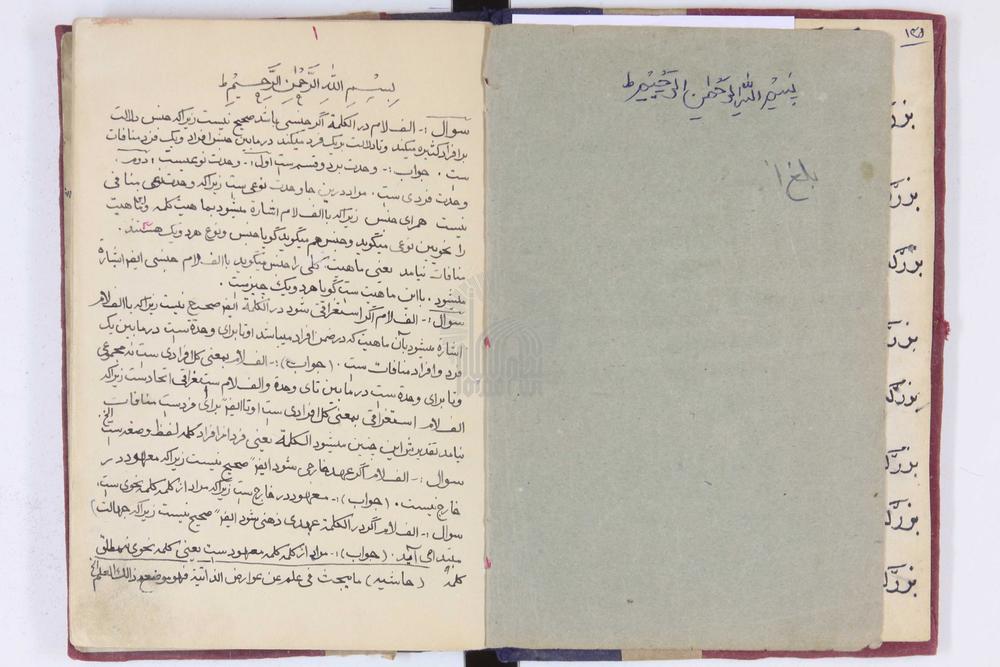 بسم الله الرحمن الرحیم ط
بلغ ا
۱
بِسْمِ اللهِ الرَّحْمٰنِ الرَّحِیْمِ ط
سوال :- الف لام در الکلمة اگر جنسی باشد صحیح نیست زیرا که جنس دلالت
بر افراد کثیره میکند و تا دلالت بر یک فرد میکند در مابین جنس افراد و یک فرد منافات
ست . جواب :- وحدت بر دو قسم ست اول :- وحدت نوعیست ، دوم
وحدت فردی ست . مراد درین جا وحدت نوعی ست زیرا که وحدت نوعی منافی
نیست همرای جنس زیرا که با الف لام اشاره میشود بماهیت کلمه و ماهیت
را نحویین نوعی میگوید و جنس هم میگوید گویا جنس و نوع هر دو یک هستند .
منافات نیامد یعنی ماهیت کلی را جنس میگوید با الف لام جنسی ایضا اشارة
میشود . با این ماهیت ست گویا هر دو یک چیز ست
سوال :- الف لام اگر استغراقی شود در الکلمة ایضا صحیح نیست زیرا که با الف لام
اشاره میشود بآن ماهیت که در ضمن افراد میباشد او تا برای وحدة ست در مابین یک
فرد و افراد منافات ست . (جواب) :- الف لام بمعنی کل افرادی ست نه مجموعی
و تا برای وحدة ست در مابین تای وحدة و الف لام استغراقی اتحاد ست زیرا که
الف لام استغراقی بمعنی کل افرادی ست او تا ایضا برای فرد ست منافات
نیامد تقدیرش این چنین میشود الکلمة یعنی فرد از افراد کلمه لفظ وضع ست الخ
سوال :- الف لام اگر عهد خارجی شود ایضا صحیح نیست زیرا که معهود در
خارج نیست . (جواب) :- معهود در خارج ست زیرا که مراد از کلمه کلمه نحوی ست .
سوال :- الف لام اگر در الکلمة عهدی ذهنی شود ایضا صحیح نیست زیرا که جهالت
مبتدا می آید . (جواب) :- مراد از کلمه کلمه معهود ست یعنی کلمه نحوی نه مطلق
کلمة (حاشیه) ما یبحث فی علم عن عوارض الذاتیة فهو موضوع ذالك العلم
۱۵۱
بزرگ
بزرگ
بزرگ
بزرگ
بزرگ
بزرگ
بزرگ
بزرگ